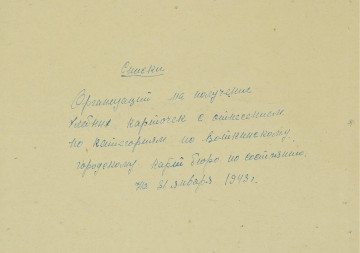 Списки
Организаций на получение
хлебных карточек с отнесением
по категориям по
городскому карт бюро по состоянию
на 31 января 1943 г.